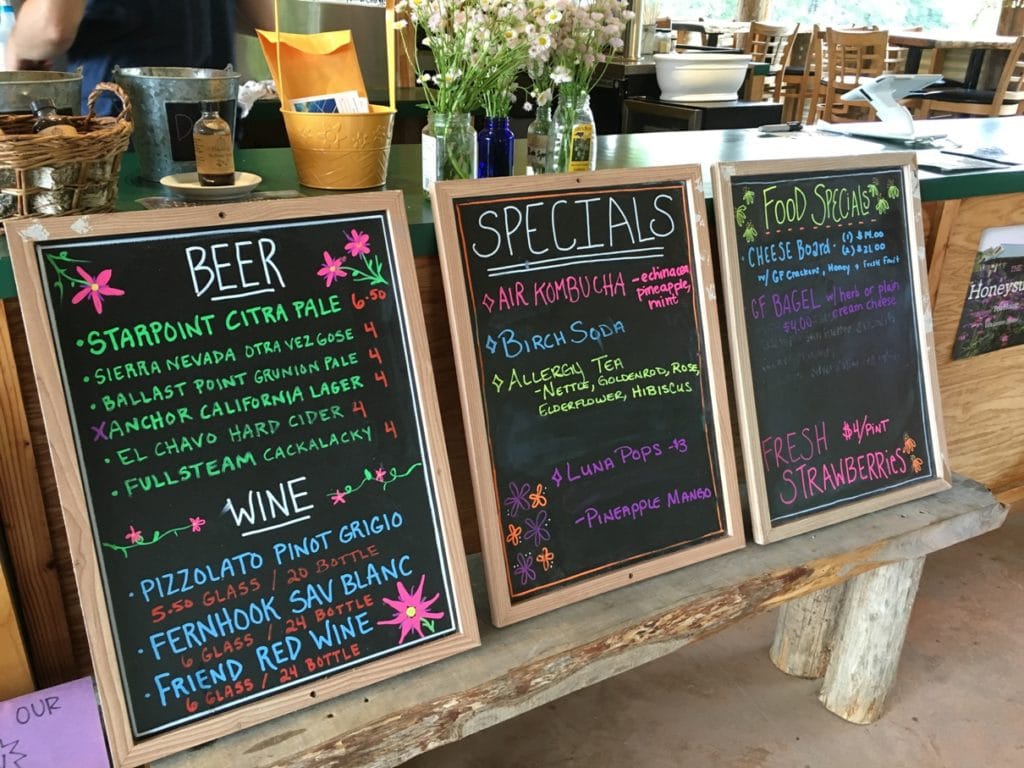 BEER
• STARPOINT CITRA PALE 6.50
• SIERRA NEVADA OTRA VEZ GOSE 4
• BALLAST POINT GRUNION PALE 4
X ANCHOR CALIFORNIA LAGER 4
• EL CHAVO HARD CIDER 4
• FULLSTEAM CACKALACKY 4
WINE
• PIZZOLATO PINOT GRIGIO
5.50 GLASS / 20 BOTTLE
• FERNHOOK SAV BLANC
6 GLASS / 24 BOTTLE
• FRIEND RED WINE
6 GLASS / 24 BOTTLE
SPECIALS
AIR KOMBUCHA - echinacea,
pineapple,
mint
BIRCH SODA
ALLERGY TEA
- NETTLE, GOLDENROD, ROSE,
ELDERFLOWER, HIBISCUS
LUNA POPS - $3
- PINEAPPLE MANGO
FOOD SPECIALS
• CHEESE BOARD - (1) $14.00
(2) $21.00
w/ GF Crackers, Honey & Fresh Fruit
• GF BAGEL w/ herb or plain
$4.00 cream cheese
FRESH $4/PINT
STRAWBERRIES
THE
Honeysu
OUR